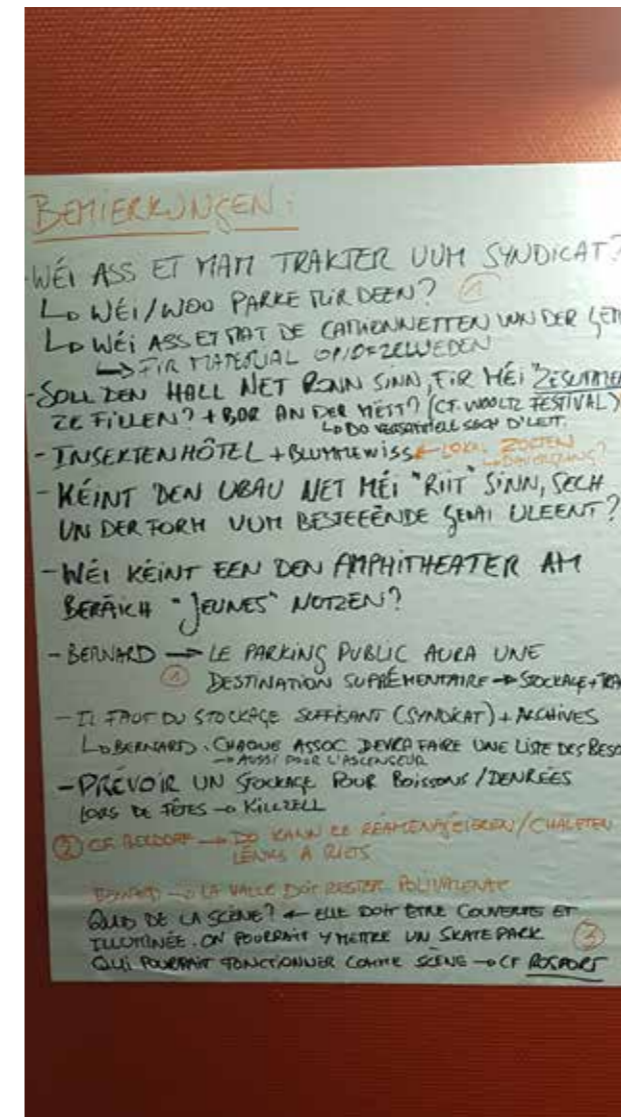 BEMIERKUNGEN:
- WÉI ASS ET MAM TRAKTER VUM SYNDICAT?
↳ WÉI/WOO PARKE MIR DEEN? ①
↳ WÉI ASS ET MAT DE CAMIONNETTEN VUN DER GEM
↳ FIR MATERIAL OP/OFZELUEDEN
- SOLL DEN HALL NET RONN SINN, FIR MÉI "ZESUMMEN
ZE FILLEN? + BAR AN DER MËTT? (CF. WOOLTZ FESTIVAL)
↳ DO VERSAMMELE SECH D'LEIT.
- INSEKTENHÔTEL + BLUMMEWISS ← LOKAL ZORTEN
- KÉINT DEN UBAU NET MÉI "RIIT" SINN, SECH
UN DER FORM VUM BESTEEËNDE GEBAI ULEENT?
- WÉI KÉINT EEN DEN AMPHITHEATER AM
BERÄICH "JEUNES" NOTZEN?
- BERNARD → LE PARKING PUBLIC AURA UNE
① DESTINATION SUPPLÉMENTAIRE → STOCKAGE + TRA
- IL FAUT DU STOCKAGE SUFFISANT (SYNDICAT) + ARCHIVES
↳ BERNARD: CHAQUE ASSOC DEVRA FAIRE UNE LISTE DES BESO
→ AUSSI POUR L'ASCENSEUR
- PRÉVOIR UN STOCKAGE POUR BOISSONS/DENRÉES
LORS DE FÊTES → KILLZELL
② CF → DO KANN EE REAMENAGÉIEREN/CHALETEN
LÉNKS A RIETS
BERNARD → LA DOIT RESTER POLIVALENTE
QUID DE LA SCÈNE? ← ELLE DOIT ÊTRE COUVERTE ET
ILLUMINÉE. ON POURRAIT Y METTRE UN SKATEPARK ③
QUI POURRAIT FONCTIONNER COMME SCÈNE → CF ROSPORT